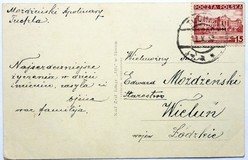 Możdżeński Apolinary
Tuchola
Najserdeczniejsze
życzenia w dniu
imienin, zasyła
ojciec
wraz familją
POCZTA POLSKA
15
Wielmożny Pan
Edward Możdżeński
Starostwo
Wieluń
wojew. Łódzkie